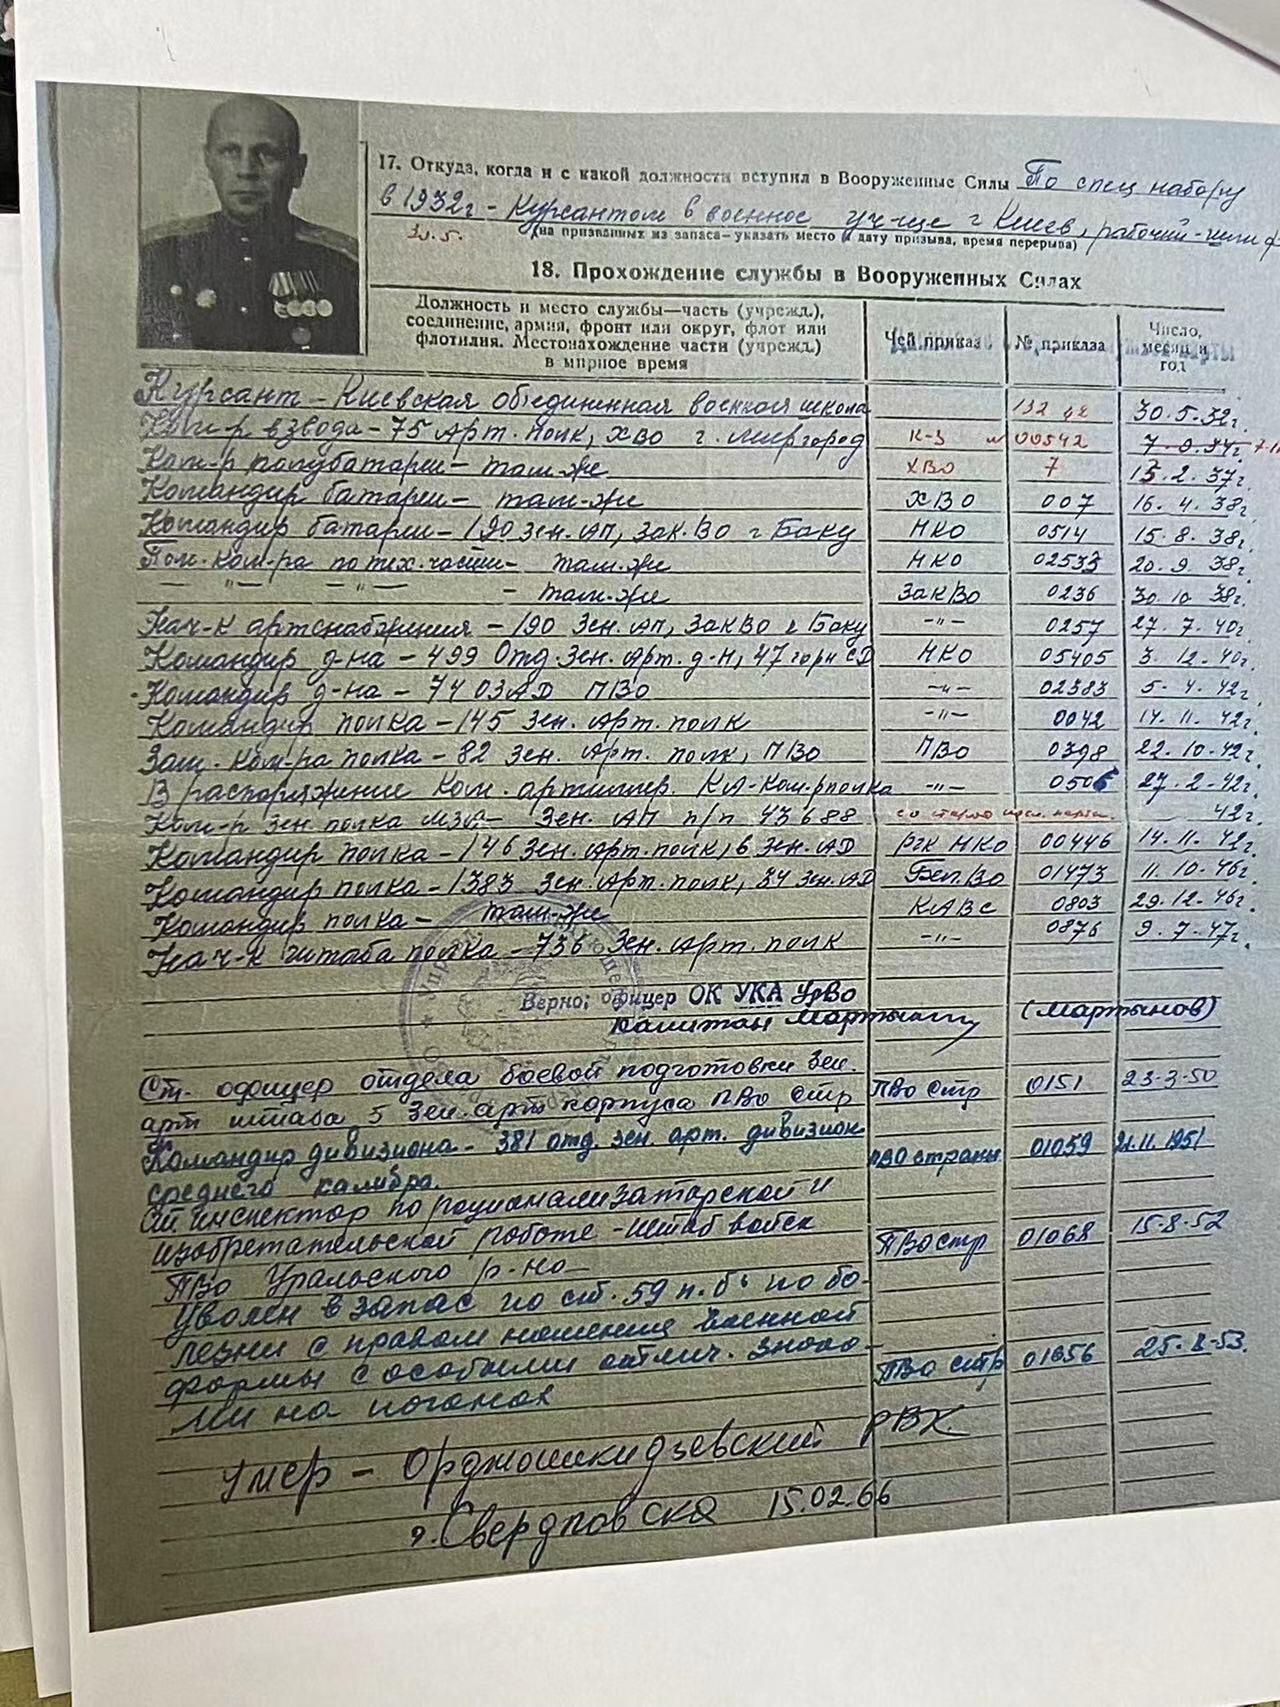 17. Откуда, когда и с какой должности вступил в Вооруженные Силы По спец набору
в 1932г - Курсантом в военное уч-ще г Киев, рабочий-
30.5. (на призванных из запаса—указать место и дату призыва, время перерыва)
18. Прохождение службы в Вооруженных Силах
Должность и место службы—часть (учрежд.), соединение, армия, фронт или округ, флот или флотилия. Местонахождение части (учрежд.) в мирное время | Чей приказ | № приказа | Число, месяц и год
Курсант - Киевская объединенная военная школа 132 30.5.32г.
Ком-р взвода - 75 Арт. полк, ХВО г. Миргород К-3 № 00542 7.9.34г.
Ком-р полубатареи - там-же ХВО 7 15.2.37г.
Командир батареи - там-же ХВО 007 16.4.38г.
Командир батареи - 190 зен. АП, Зак.ВО г Баку НКО 0514 15.8.38г.
Пом. ком-ра по тех. части - там-же НКО 02533 20.9.38г.
— "— — "— - там-же ЗакВО 0236 30.10.38г.
Нач-к артснабжения - 190 Зен. АП, ЗакВО г Баку —"— 0257 27.7.40г.
Командир д-на - 499 Отд. Зен. Арт. д-н, 47 горн СД НКО 05405 3.12.40г.
Командир д-на - 74 ОЗАД ПВО —"— 02383 5.4.42г.
Командир полка - 145 Зен. Арт. полк —"— 0042 14.11.42г.
Зам. Ком-ра полка - 82 Зен. Арт. полк, ПВО ПВО 0398 22.10.42г.
В распоряжение Ком. артиллер. КА - Ком-р полка —"— 0506 27.2.42г.
Ком-р Зен. полка МЗА - Зен. АП п/п 43688 со старой 42г.
Командир полка - 146 Зен. Арт. полк, 6 Зен. АД РГК НКО 00446 14.11.42г.
Командир полка - 1383 Зен. Арт. полк, 34 Зен. АД Бел.ВО 01473 11.10.46г.
Командир полка - там-же КАВС 0803 29.12.46г.
Нач-к штаба полка - 736 Зен. Арт. полк —"— 0876 9.7.47г.
Верно: офицер ОК УКА УрВО
капитан (Мартынов)
Ст. офицер отдела боевой подготовки Зен.
арт штаба 5 Зен. арт корпуса ПВО стр ПВО стр 0151 23-3-50
Командир дивизиона - 381 отд зен арт. дивизион
среднего калибра. ПВО страны 01059 21.11.1951
Ст инспектор по рационализаторской и
изобретательской работе - штаб войск
ПВО Уральского р-на ПВО стр 01068 15.8.52
Уволен в запас по ст. 59 п. б" по бо-
лезни с правом ношения военной
формы с особыми отлич. знака-
ми на погонах ПВО стр 01356
умер - Орджоникидзевский РВК
г. Свердловска 15.02.66